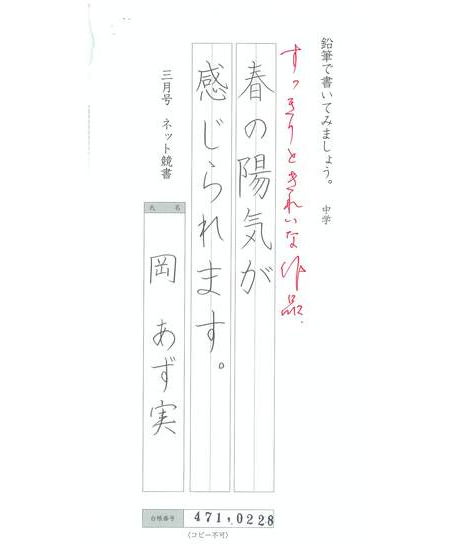 鉛筆で書いてみましょう。　中学
すっきりときれいな作品.
春の陽気が
感じられます。
三月号　ネット競書
氏　名
岡　あず実
台帳番号　471,0228
〈コピー不可〉